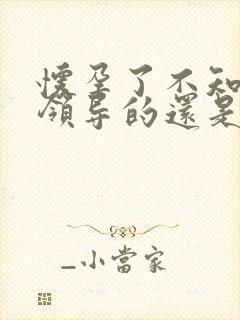 懷孕了不知
領导的還是
_小當家